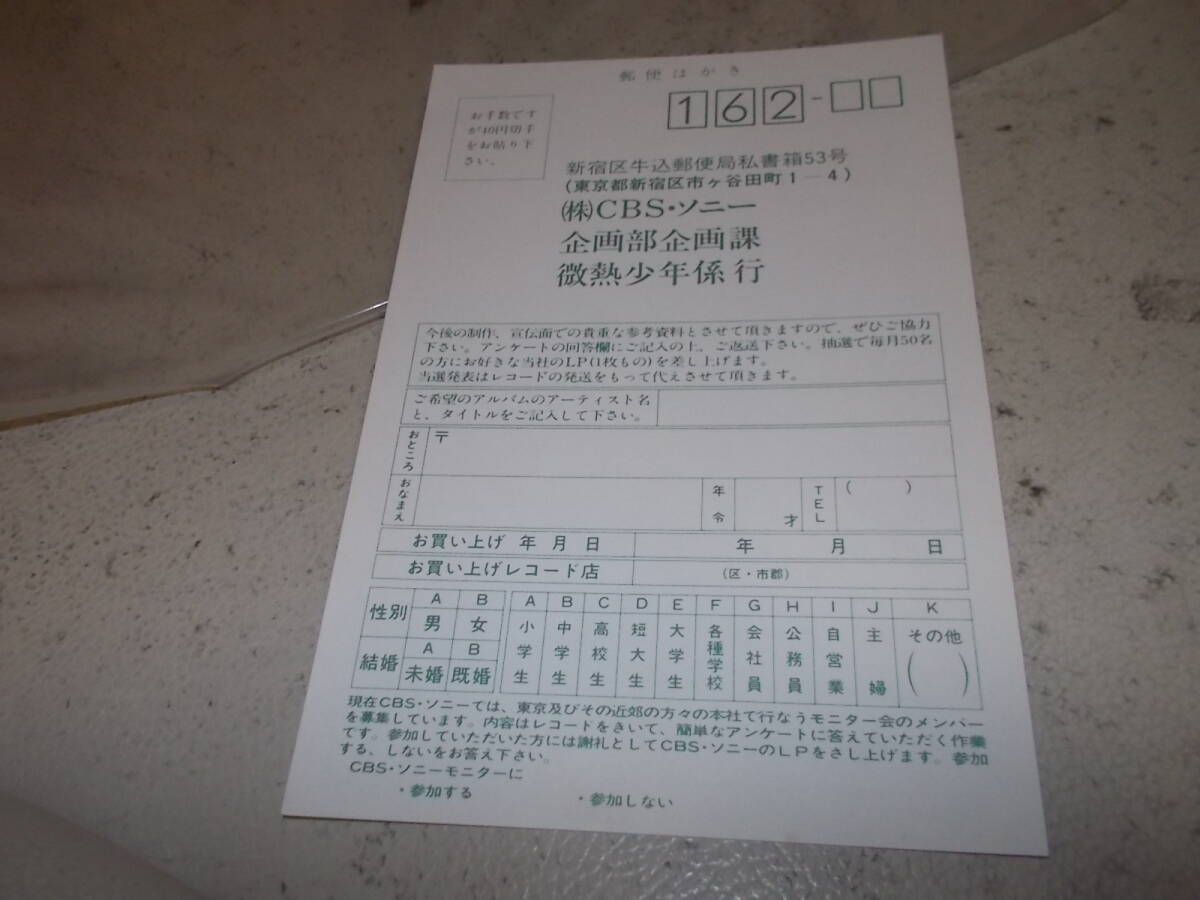 郵便はがき
お手数です
が40円切手
をお貼り下
さい。
162-
新宿区牛込郵便局私書箱53号
(東京都新宿区市ヶ谷田町1-4)
(株)CBS・ソニー
企画部企画課
微熱少年係行
今後の制作、宣伝面での貴重な参考資料とさせて頂きますので、ぜひご協力
下さい。アンケートの回答欄にご記入の上、ご返送下さい。抽選で毎月50名
の方にお好きな当社のLP(1枚もの)を差し上げます。
当選発表はレコードの発送をもって代えさせて頂きます。
ご希望のアルバムのアーティスト名
と、タイトルをご記入して下さい。
おところ
〒
おなまえ
年令
才
TEL
( )
お買い上げ 年 月 日
年 月 日
お買い上げレコード店
(区・市郡)
性別
A B
男 女
結婚
A B
未婚 既婚
A B C D E F G H I J K
小学生 中学生 高校生 短大生 大学生 各種学校 会社員 公務員 自営業 主婦 その他( )
現在CBS・ソニーでは、東京及びその近郊の方々の本社で行なうモニター会のメンバー
を募集しています。内容はレコードをきいて、簡単なアンケートに答えていただく作業
です。参加していただいた方には謝礼としてCBS・ソニーのLPをさし上げます。参加
する、しないをお答え下さい。
CBS・ソニーモニターに
・参加する ・参加しない